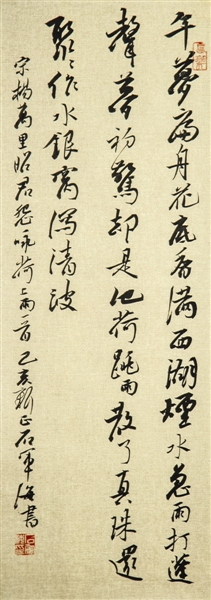 午夢扁舟花底香满西湖煙水急雨打篷
聲夢初驚却是池荷跳雨散了真珠還
聚々作水銀窩瀉清波
宋楊萬里昭君怨咏荷上雨一首己亥新正石軍海書